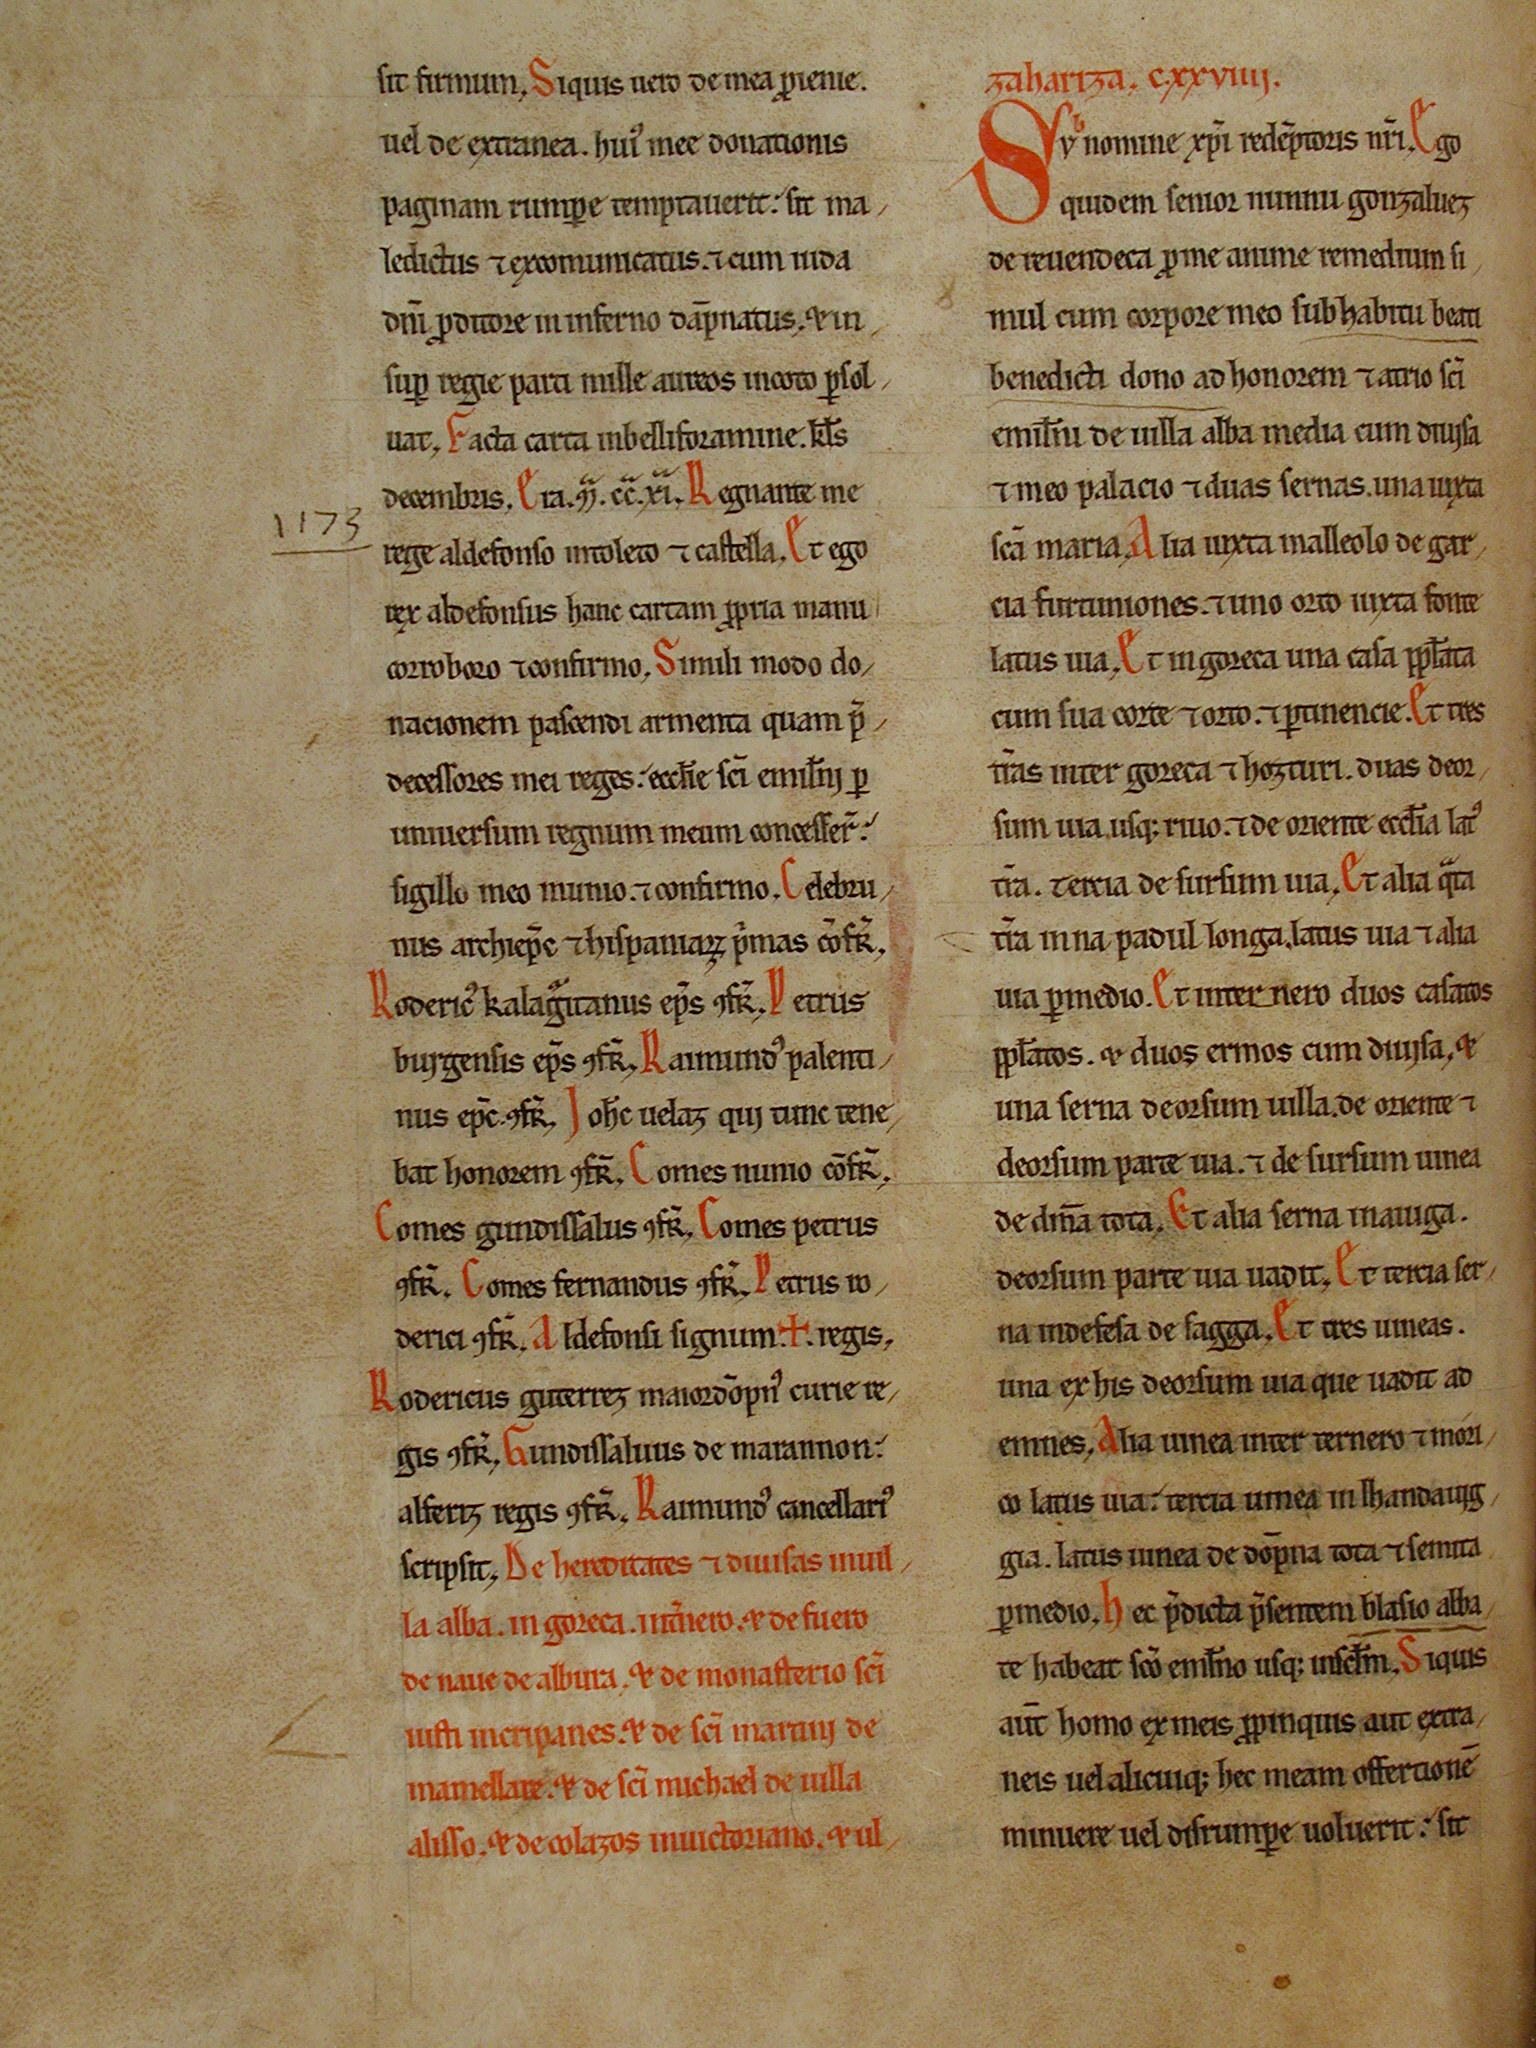 sit firmum. Siquis uero de mea p̱genie.
uel de extranea. hui᾽ mee donationis
paginam rumꝑe temptauerit: sit ma
ledictus ⁊ excomunicatus. ⁊ cum iuda
dñi ꝓditore in inferno dāpnatus. & in
suꝑ regie parti mille aureos in coto ꝑsol
uat. Facta carta in belliforamine. kl̄s
decembris. Era. ᾽. cc̄. xi. Regnante me
1173
rege aldefonso in toleto ⁊ castella. Et ego
rex aldefonsus hanc cartam ꝓpria manu
corroboro ⁊ confirmo. Simili modo do
nacionem pascendi armenta quam p̄
decessores mei reges: eccl̄ie sc̄i emil̄ij ꝑ
uniuersum regnum meum concesser̄:
sigillo meo munio. ⁊ confirmo. Celebru
nus archiep̄c ⁊ hispaniaꝝ p̄mas cōfr̄.
Roderic᾽ kalagr̄itanus ep̄s ꝯfr̄. Petrus
burgensis ep̄s ꝯfr̄. Raimund᾽ palenti
nus ep̄c ꝯfr̄. Joh̄c uelaz qui tunc tene
bat honorem ꝯfr̄. Comes nunio cōfr̄.
Comes gundissalus ꝯfr̄. Comes petrus
ꝯfr̄. Comes fernandus ꝯfr̄. Petrus ro
derici ꝯfr̄. Aldefonsi signum ✝. regis.
Rodericus guterrez maiordōpn᾽ curie re
gis ꝯfr̄. Gundissaluus de marannon:
alferiz regis ꝯfr̄. Raimund᾽ cancellari᾽
scripsit. De hereditates ⁊ diuisas in uil
la alba. in goreca. int̄nero. & de fuero
de naue de albura. & de monasterio sc̄i
iusti in cripanes. & de sc̄i martinj de
mamellare. & de sc̄i michael de uilla
alisso. & de colazos in uictoriano. & ul
zahariza. cxxviiij.
Svb nomine xp̄i redēptoris nr̄i. Ego
quidem senior nunnu gonzaluez
de reuendeca ꝓ me anime remedium si
mul cum corpore meo sub habitu beati
benedicti dono ad honorem ⁊ atrio sc̄i
emil̄ni de uilla alba media cum diuisa
⁊ meo palacio ⁊ duas sernas. una iuxta
sc̄a maria. Alia iuxta malleolo de gar
cia furtuniones. ⁊ uno orto iuxta fonte
latus uia. Et in goreca una casa pp̄lata
cum sua corte ⁊ orto. ⁊ ꝑtinencie. Et tres
tr̄as inter goreca ⁊ hozturi. duas deor
sum uia. usq; riuo. ⁊ de oriente eccl̄ia lat᾽
tr̄a. tercia de sursum uia. Et alia qͣrta
tr̄a in na padul longa. latus uia ⁊ alia
uia ꝑ medio. Et inter nero duos casatos
pp̄latos. & duos ermos cum diuisa. &
una serna deorsum uilla. de oriente ⁊
deorsum parte uia. ⁊ de sursum uinea
de dm̄a tota. Et alia serna in aiuga.
deorsum parte uia uadit. Et tercia ser
na in defesa de sagga. Et tres uineas.
una ex his deorsum uia que uadit ad
ennes. Alia uinea inter ternero ⁊ mori
co latus uia: tercia uinea in lhandauig
gia. latus uinea de dōpna tota ⁊ semita
ꝑ medio. Hec p̄dicta p̄sentem blasio alba
te habeat sc̄o emil̄no usq; in scl̄m. Siquis
aūt homo ex meis ꝓpinquis aut extra
neis uel alicuiq; hec meam offertionē
minuere uel disrumꝑe uoluerit: sit